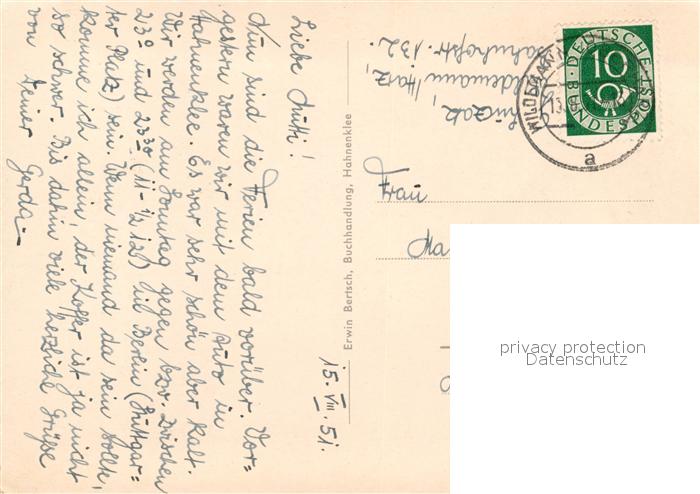 Liebe Mutti!
Nun sind die Ferien bald vorüber. Vor=
gestern waren wir mit dem Auto in
Hahnenklee. Es war sehr schön aber kalt.
Wir werden am Sonntag gegen bzw. zwischen
23⁰ und 23³⁰ (11-½12) in Berlin (Stuttgar=
ter Platz) sein. Wenn niemand da sein sollte,
komme ich allein, der Koffer ist ja nicht
so schwer. Bis dahin viele herzliche Grüße
von Deiner Gerda.
15. VIII. 51.
Erwin Bertsch, Buchhandlung, Hahnenklee
Wildemann/Harz,
Bahnhofstr. 132.
DEUTSCHE
BUNDESPOST
10
a
Frau
Ma
privacy protection
Datenschutz